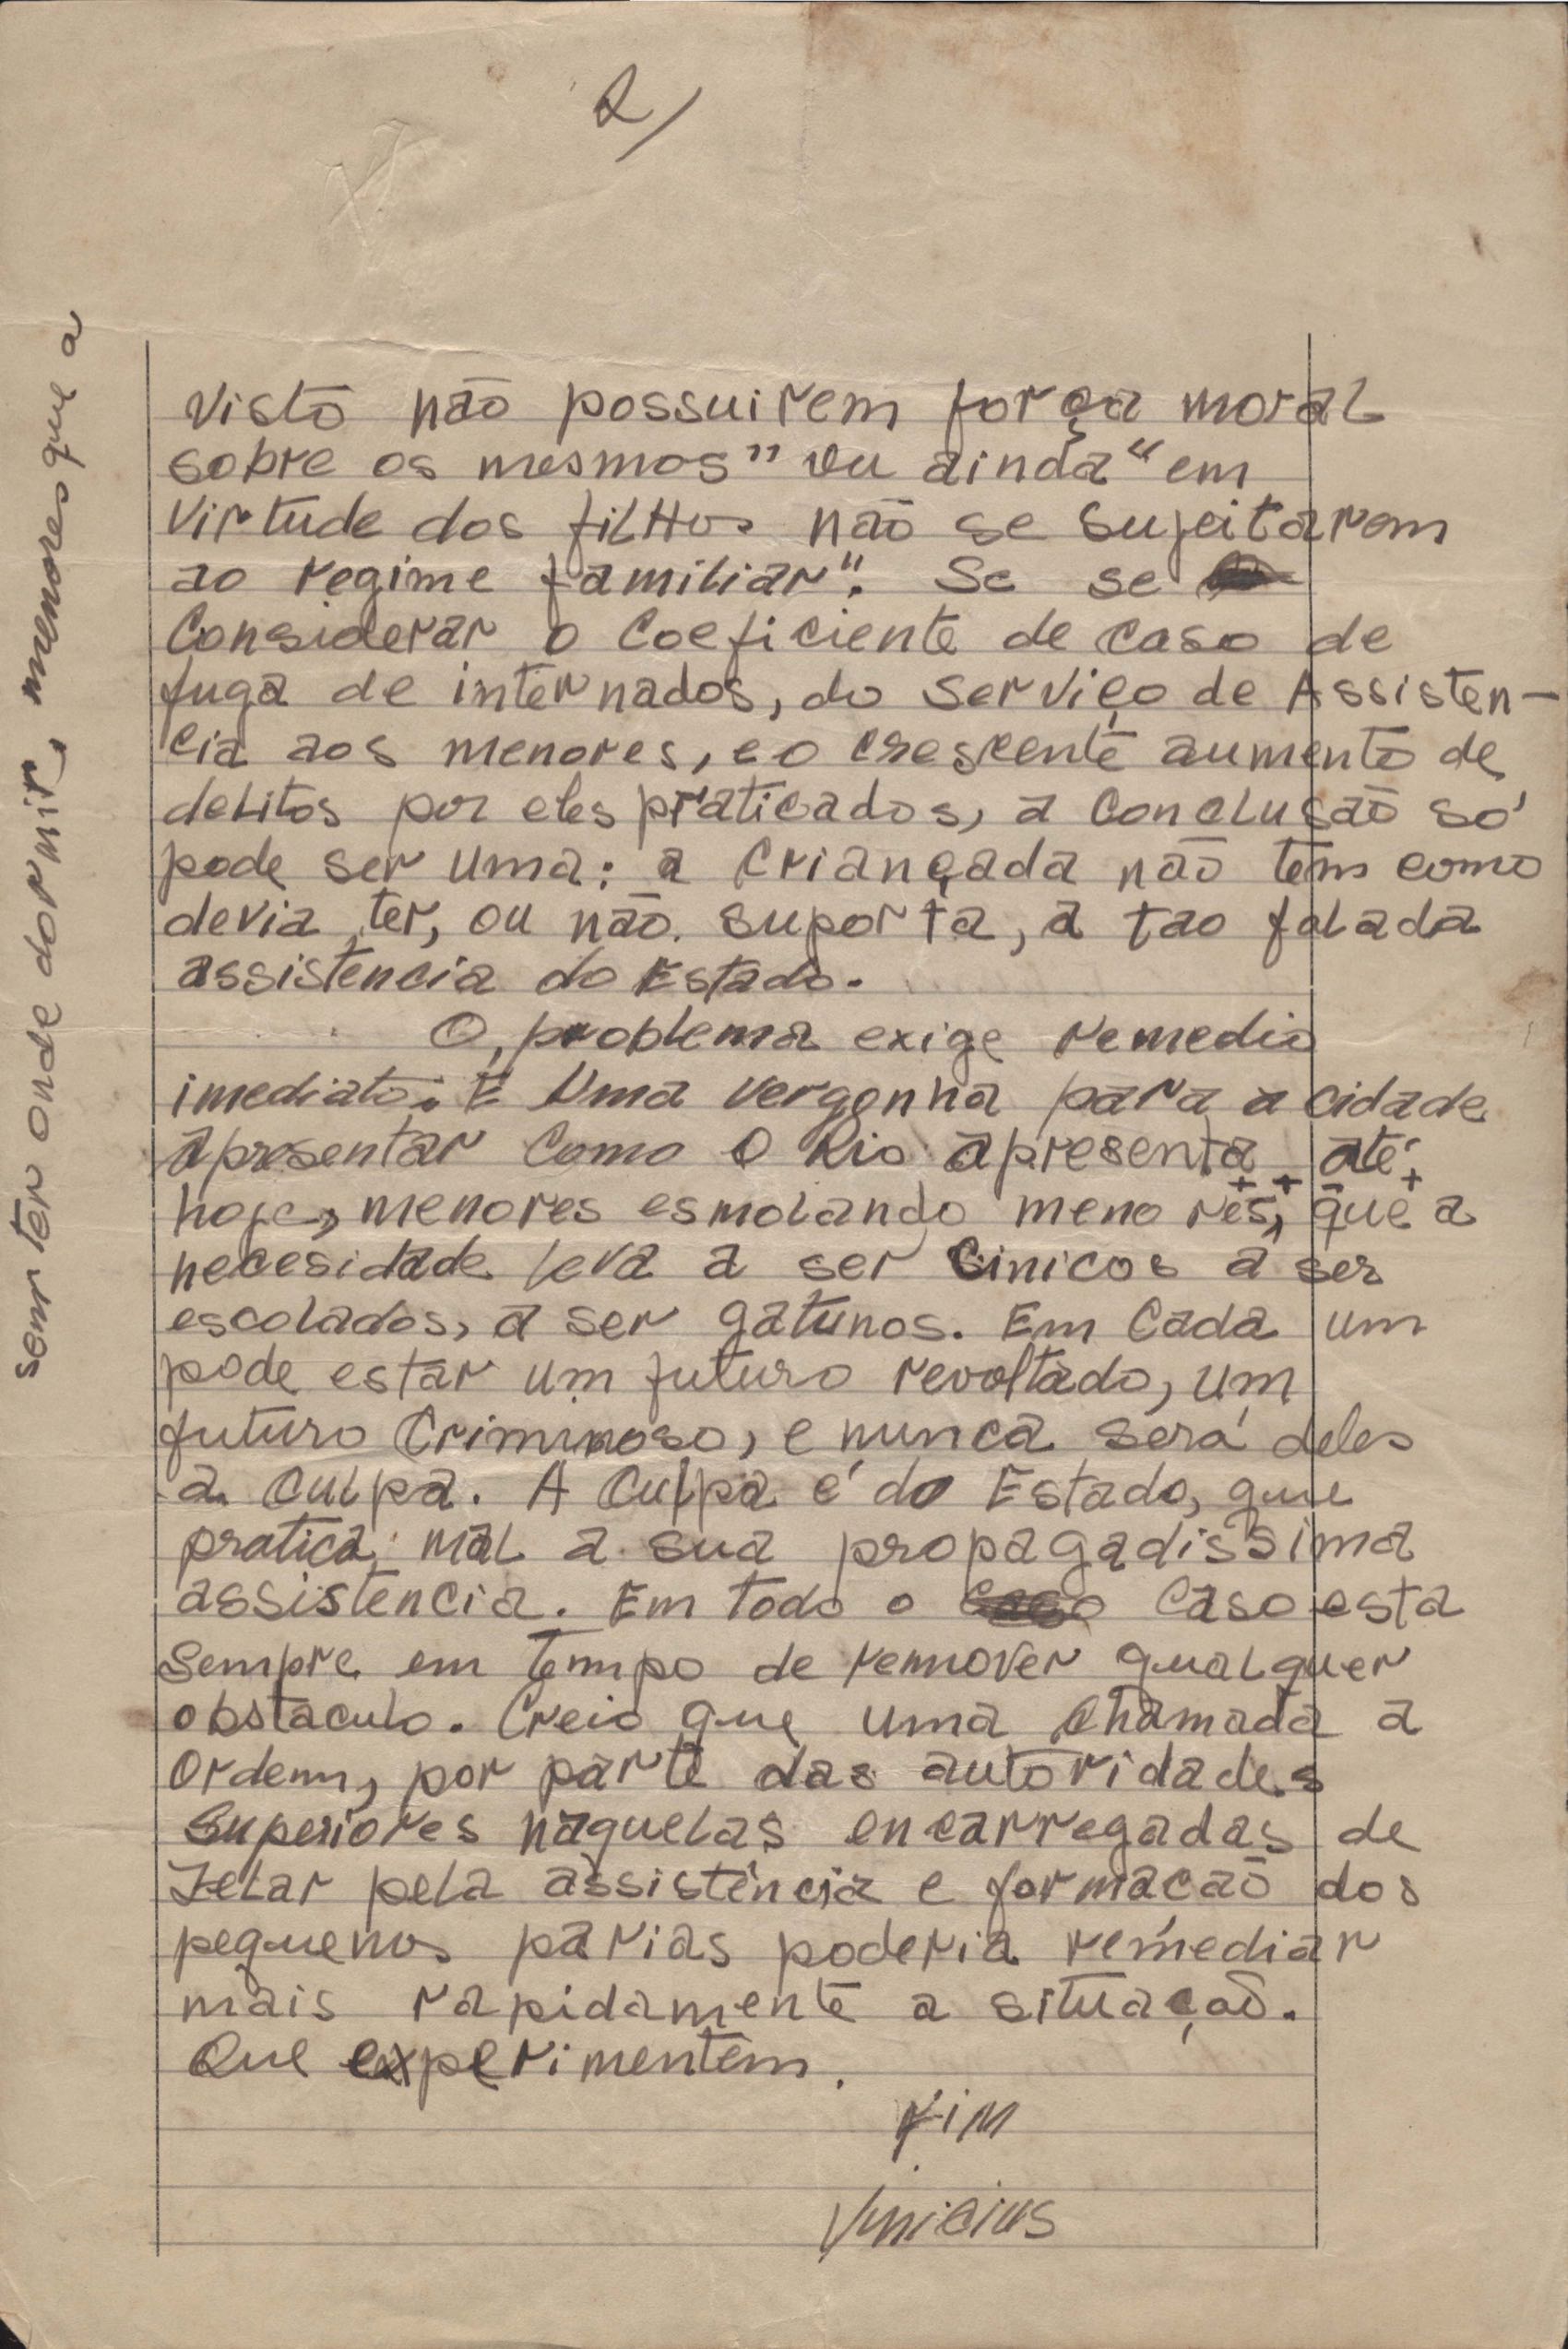 2/
visto não possuirem força moral
sobre os mesmos" ou ainda "em
virtude dos filhos não se sujeitarem
ao regime familiar". Se se
considerar o coeficiente de caso de
fuga de internados, do Serviço de Assisten-
cia aos menores, e o crescente aumento de
delitos por eles praticados, a conclusão só
pode ser uma: a criançada não tem como
devia ter, ou não suporta, a tao falada
assistencia do Estado.
O problema exige remedio
imediato. E uma vergonha para a cidade
apresentar como o Rio apresenta até
hoje, menores esmolando menores, que a
necesidade leva a ser cinicos a ser
escolados, a ser gatunos. Em cada um
pode estar um futuro revoltado, um
futuro criminoso, e nunca será deles
a culpa. A culpa é do Estado, que
pratica mal a sua propagadissima
assistencia. Em todo o caso esta
sempre em tempo de remover qualquer
obstaculo. Creio que uma chamada a
ordem, por parte das autoridades
superiores naquelas encarregadas de
zelar pela assistência e formacão dos
pequenos parias poderia remediar
mais rapidamente a situação.
Que experimentem.
FIM
Vinicius
sem ter onde dormir, menores que a